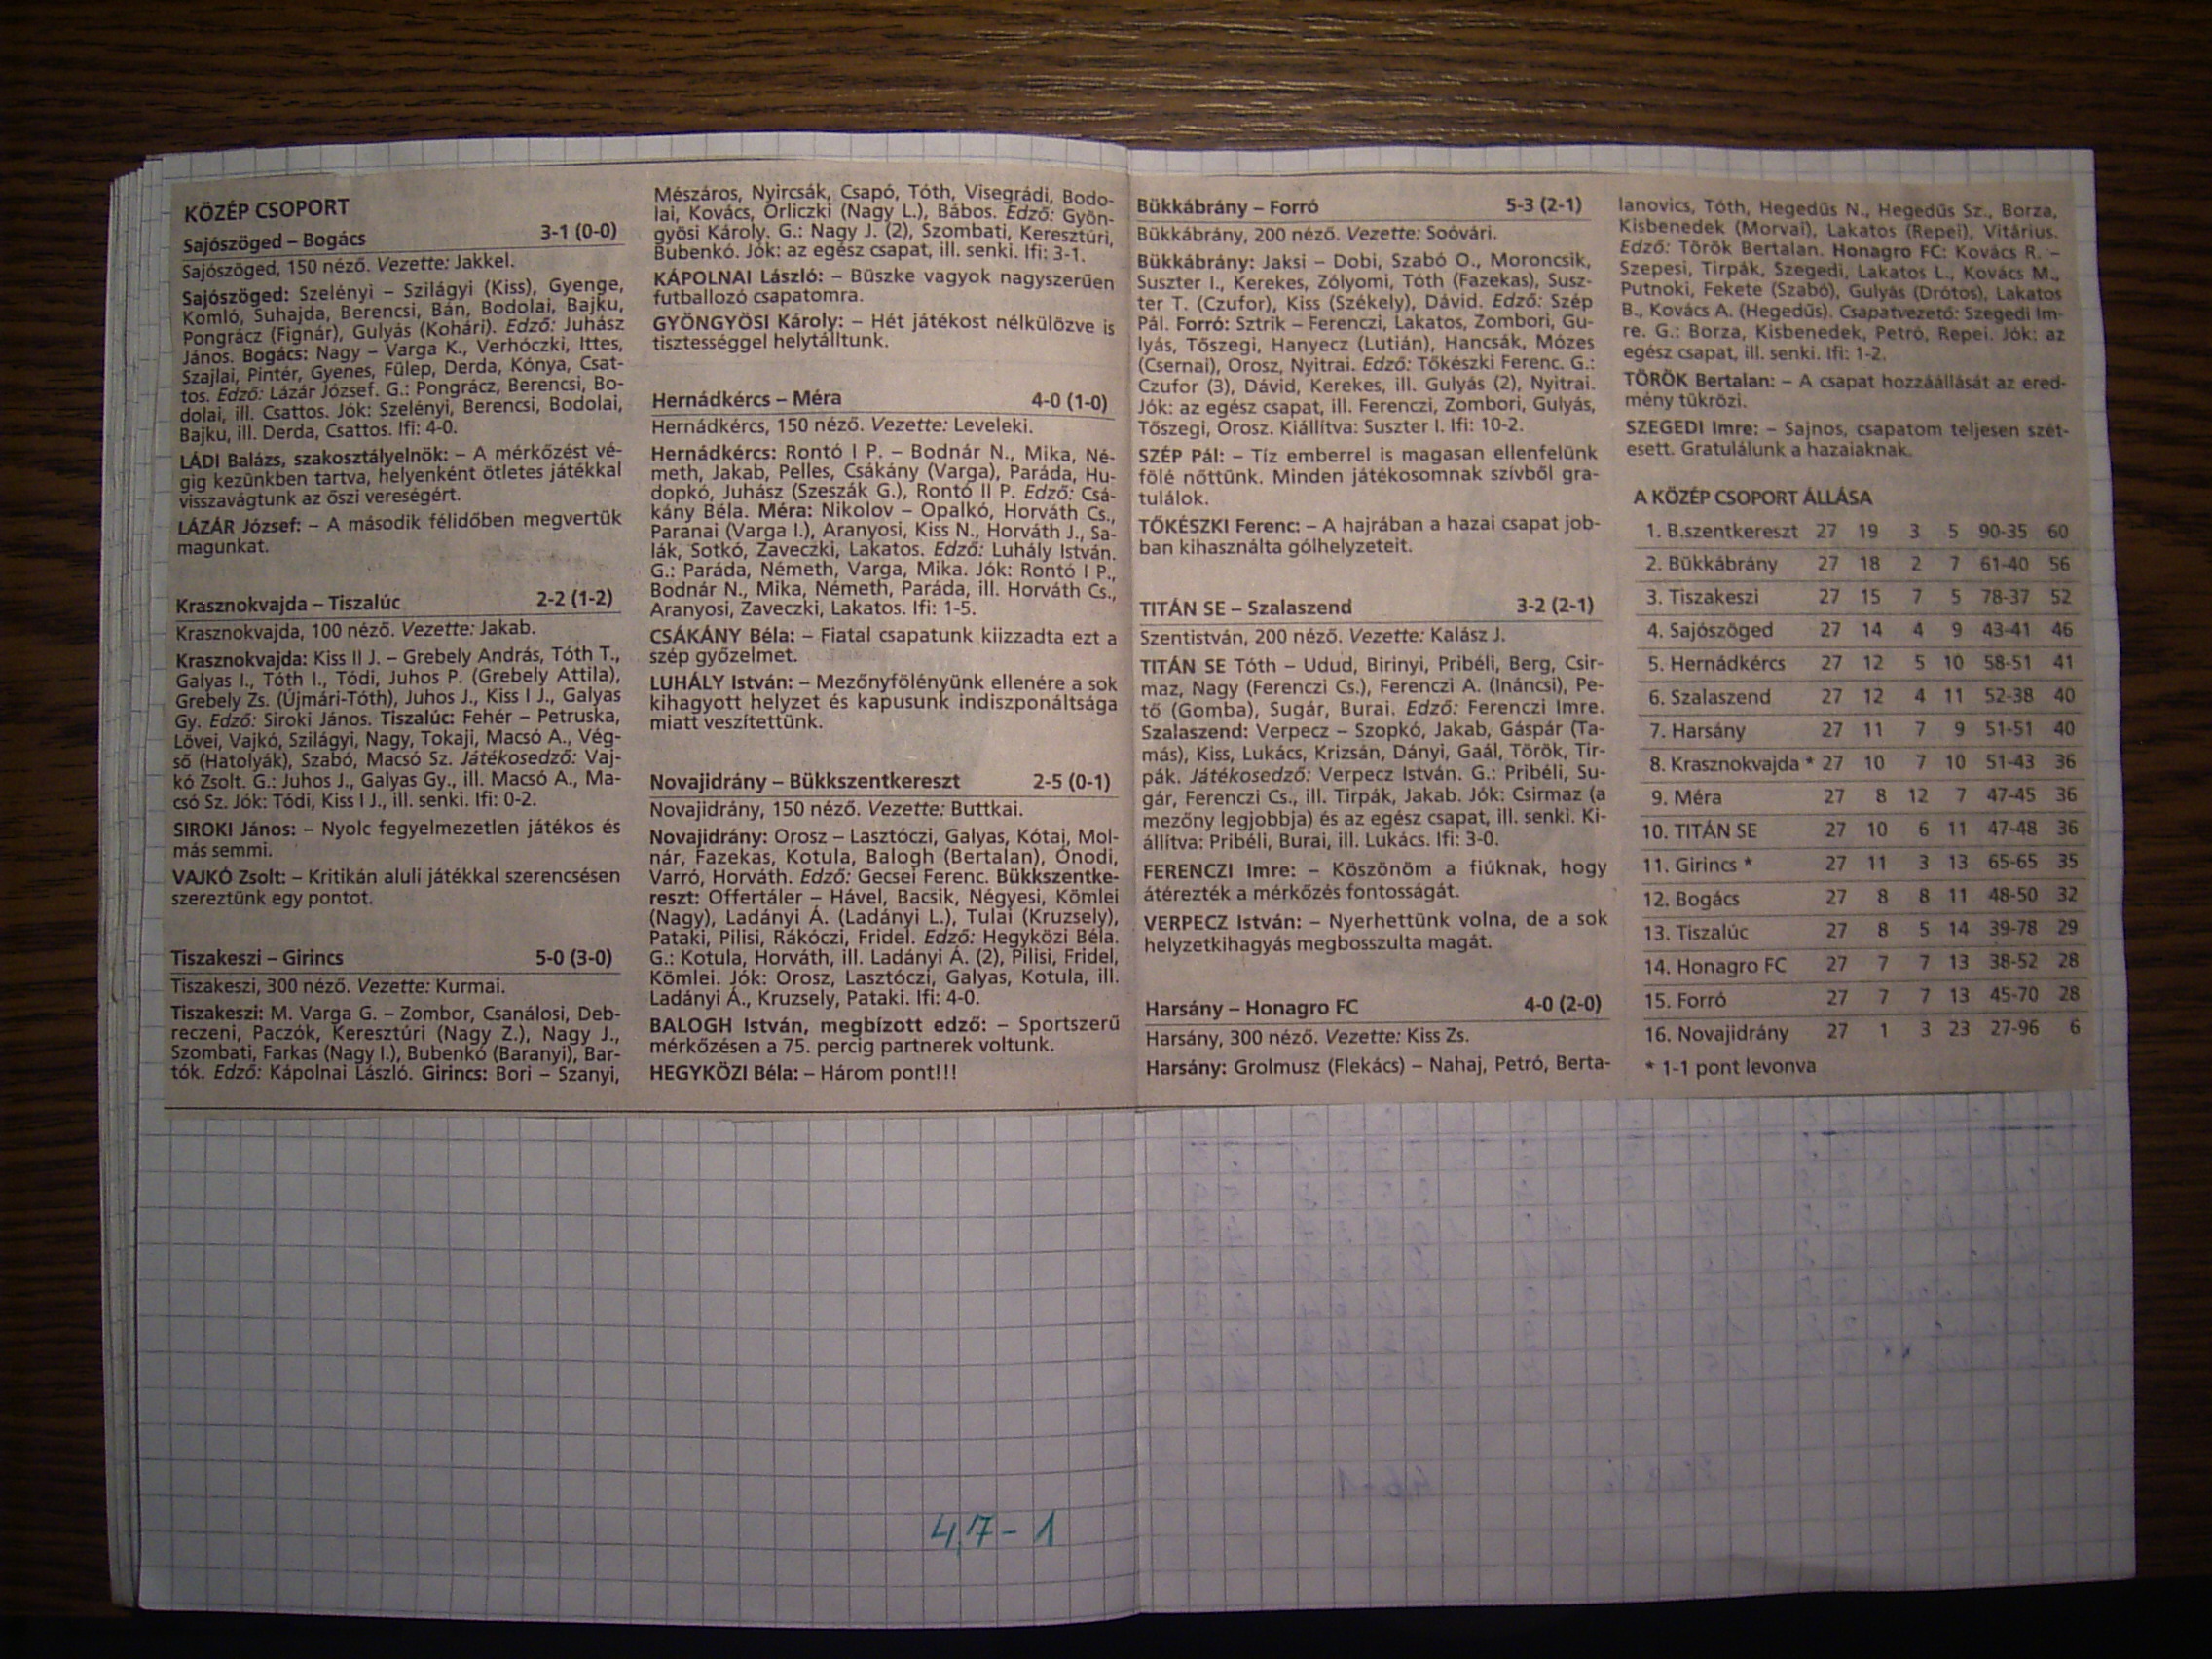 KÖZÉP CSOPORT
Sajószöged – Bogács 3-1 (0-0)
Sajószöged, 150 néző. Vezette: Jakkel.
Sajószöged: Szelényi – Szilágyi (Kiss), Gyenge,
Komló, Suhajda, Berencsi, Bán, Bodolai, Bajku,
Pongrácz (Fignár), Gulyás (Kohári). Edző: Juhász
János. Bogács: Nagy – Varga K., Verhóczki, Ittes,
Szajlai, Pintér, Gyenes, Fülep, Derda, Kónya, Csat-
tos. Edző: Lázár József. G.: Pongrácz, Berencsi, Bo-
dolai, ill. Csattos. Jók: Szelényi, Berencsi, Bodolai,
Bajku, ill. Derda, Csattos. Ifi: 4-0.
LÁDI Balázs, szakosztályelnök: – A mérkőzést vé-
gig kezünkben tartva, helyenként ötletes játékkal
visszavágtunk az őszi vereségért.
LÁZÁR József: – A második félidőben megvertük
magunkat.
Krasznokvajda – Tiszalúc 2-2 (1-2)
Krasznokvajda, 100 néző. Vezette: Jakab.
Krasznokvajda: Kiss II J. – Grebely András, Tóth T.,
Galyas I., Tóth I., Tódi, Juhos P. (Grebely Attila),
Grebely Zs. (Újmári-Tóth), Juhos J., Kiss I J., Galyas
Gy. Edző: Siroki János. Tiszalúc: Fehér – Petruska,
Lövei, Vajkó, Szilágyi, Nagy, Tokaji, Macsó A., Vég-
ső (Hatolyák), Szabó, Macsó Sz. Játékosedző: Vaj-
kó Zsolt. G.: Juhos J., Galyas Gy., ill. Macsó A., Ma-
csó Sz. Jók: Tódi, Kiss I J., ill. senki. Ifi: 0-2.
SIROKI János: – Nyolc fegyelmezetlen játékos és
más semmi.
VAJKÓ Zsolt: – Kritikán aluli játékkal szerencsésen
szereztünk egy pontot.
Tiszakeszi – Girincs 5-0 (3-0)
Tiszakeszi, 300 néző. Vezette: Kurmai.
Tiszakeszi: M. Varga G. – Zombor, Csanálosi, Deb-
reczeni, Paczók, Keresztúri (Nagy Z.), Nagy J.,
Szombati, Farkas (Nagy I.), Bubenkó (Baranyi), Bar-
tók. Edző: Kápolnai László. Girincs: Bori – Szanyi,
Mészáros, Nyircsák, Csapó, Tóth, Visegrádi, Bodo-
lai, Kovács, Orliczki (Nagy L.), Bábos. Edző: Gyön-
gyösi Károly. G.: Nagy J. (2), Szombati, Keresztúri,
Bubenkó. Jók: az egész csapat, ill. senki. Ifi: 3-1.
KÁPOLNAI László: – Büszke vagyok nagyszerűen
futballozó csapatomra.
GYÖNGYÖSI Károly: – Hét játékost nélkülözve is
tisztességgel helytálltunk.
Hernádkércs – Méra 4-0 (1-0)
Hernádkércs, 150 néző. Vezette: Leveleki.
Hernádkércs: Rontó I P. – Bodnár N., Mika, Né-
meth, Jakab, Pelles, Csákány (Varga), Paráda, Hu-
dopkó, Juhász (Szeszák G.), Rontó II P. Edző: Csá-
kány Béla. Méra: Nikolov – Opalkó, Horváth Cs.,
Paranai (Varga I.), Aranyosi, Kiss N., Horváth J., Sa-
lák, Sotkó, Zaveczki, Lakatos. Edző: Luhály István.
G.: Paráda, Németh, Varga, Mika. Jók: Rontó I P.,
Bodnár N., Mika, Németh, Paráda, ill. Horváth Cs.,
Aranyosi, Zaveczki, Lakatos. Ifi: 1-5.
CSÁKÁNY Béla: – Fiatal csapatunk kiizzadta ezt a
szép győzelmet.
LUHÁLY István: – Mezőnyfölényünk ellenére a sok
kihagyott helyzet és kapusunk indiszponáltsága
miatt veszítettünk.
Novajidrány – Bükkszentkereszt 2-5 (0-1)
Novajidrány, 150 néző. Vezette: Buttkai.
Novajidrány: Orosz – Lasztóczi, Galyas, Kótai, Mol-
nár, Fazekas, Kotula, Balogh (Bertalan), Ónodi,
Varró, Horváth. Edző: Gecsei Ferenc. Bükkszentke-
reszt: Offertáler – Hável, Bacsik, Négyesi, Kömlei
(Nagy), Ladányi Á. (Ladányi L.), Tulai (Kruzsely),
Pataki, Pilisi, Rákóczi, Fridel. Edző: Hegyközi Béla.
G.: Kotula, Horváth, ill. Ladányi Á. (2), Pilisi, Fridel,
Kömlei. Jók: Orosz, Lasztóczi, Galyas, Kotula, ill.
Ladányi Á., Kruzsely, Pataki. Ifi: 4-0.
BALOGH István, megbízott edző: – Sportszerű
mérkőzésen a 75. percig partnerek voltunk.
HEGYKÖZI Béla: – Három pont!!!
Bükkábrány – Forró 5-3 (2-1)
Bükkábrány, 200 néző. Vezette: Soóvári.
Bükkábrány: Jaksi – Dobi, Szabó O., Moroncsik,
Suszter I., Kerekes, Zólyomi, Tóth (Fazekas), Susz-
ter T. (Czufor), Kiss (Székely), Dávid. Edző: Szép
Pál. Forró: Sztrik – Ferenczi, Lakatos, Zombori, Gu-
lyás, Tőszegi, Hanyecz (Lutián), Hancsák, Mózes
(Csernai), Orosz, Nyitrai. Edző: Tőkészki Ferenc. G.:
Czufor (3), Dávid, Kerekes, ill. Gulyás (2), Nyitrai.
Jók: az egész csapat, ill. Ferenczi, Zombori, Gulyás,
Tőszegi, Orosz. Kiállítva: Suszter I. Ifi: 10-2.
SZÉP Pál: – Tíz emberrel is magasan ellenfelünk
fölé nőttünk. Minden játékosomnak szívből gra-
tulálok.
TŐKÉSZKI Ferenc: – A hajrában a hazai csapat job-
ban kihasználta gólhelyzeteit.
TITÁN SE – Szalaszend 3-2 (2-1)
Szentistván, 200 néző. Vezette: Kalász J.
TITÁN SE Tóth – Udud, Birinyi, Pribéli, Berg, Csir-
maz, Nagy (Ferenczi Cs.), Ferenczi A. (Ináncsi), Pe-
tő (Gomba), Sugár, Burai. Edző: Ferenczi Imre.
Szalaszend: Verpecz – Szopkó, Jakab, Gáspár (Ta-
más), Kiss, Lukács, Krizsán, Dányi, Gaál, Török, Tir-
pák. Játékosedző: Verpecz István. G.: Pribéli, Su-
gár, Ferenczi Cs., ill. Tirpák, Jakab. Jók: Csirmaz (a
mezőny legjobbja) és az egész csapat, ill. senki. Ki-
állítva: Pribéli, Burai, ill. Lukács. Ifi: 3-0.
FERENCZI Imre: – Köszönöm a fiúknak, hogy
átérezték a mérkőzés fontosságát.
VERPECZ István: – Nyerhettünk volna, de a sok
helyzetkihagyás megbosszulta magát.
Harsány – Honagro FC 4-0 (2-0)
Harsány, 300 néző. Vezette: Kiss Zs.
Harsány: Grolmusz (Flekács) – Nahaj, Petró, Berta-
lanovics, Tóth, Hegedűs N., Hegedűs Sz., Borza,
Kisbenedek (Morvai), Lakatos (Repei), Vitárius.
Edző: Török Bertalan. Honagro FC: Kovács R. –
Szepesi, Tirpák, Szegedi, Lakatos L., Kovács M.,
Putnoki, Fekete (Szabó), Gulyás (Drótos), Lakatos
B., Kovács A. (Hegedűs). Csapatvezető: Szegedi Im-
re. G.: Borza, Kisbenedek, Petró, Repei. Jók: az
egész csapat, ill. senki. Ifi: 1-2.
TÖRÖK Bertalan: – A csapat hozzáállását az ered-
mény tükrözi.
SZEGEDI Imre: – Sajnos, csapatom teljesen szét-
esett. Gratulálunk a hazaiaknak.
A KÖZÉP CSOPORT ÁLLÁSA
1. B.szentkereszt 27 19 3 5 90-35 60
2. Bükkábrány 27 18 2 7 61-40 56
3. Tiszakeszi 27 15 7 5 78-37 52
4. Sajószöged 27 14 4 9 43-41 46
5. Hernádkércs 27 12 5 10 58-51 41
6. Szalaszend 27 12 4 11 52-38 40
7. Harsány 27 11 7 9 51-51 40
8. Krasznokvajda * 27 10 7 10 51-43 36
9. Méra 27 8 12 7 47-45 36
10. TITÁN SE 27 10 6 11 47-48 36
11. Girincs * 27 11 3 13 65-65 35
12. Bogács 27 8 8 11 48-50 32
13. Tiszalúc 27 8 5 14 39-78 29
14. Honagro FC 27 7 7 13 38-52 28
15. Forró 27 7 7 13 45-70 28
16. Novajidrány 27 1 3 23 27-96 6
* 1-1 pont levonva
47-1